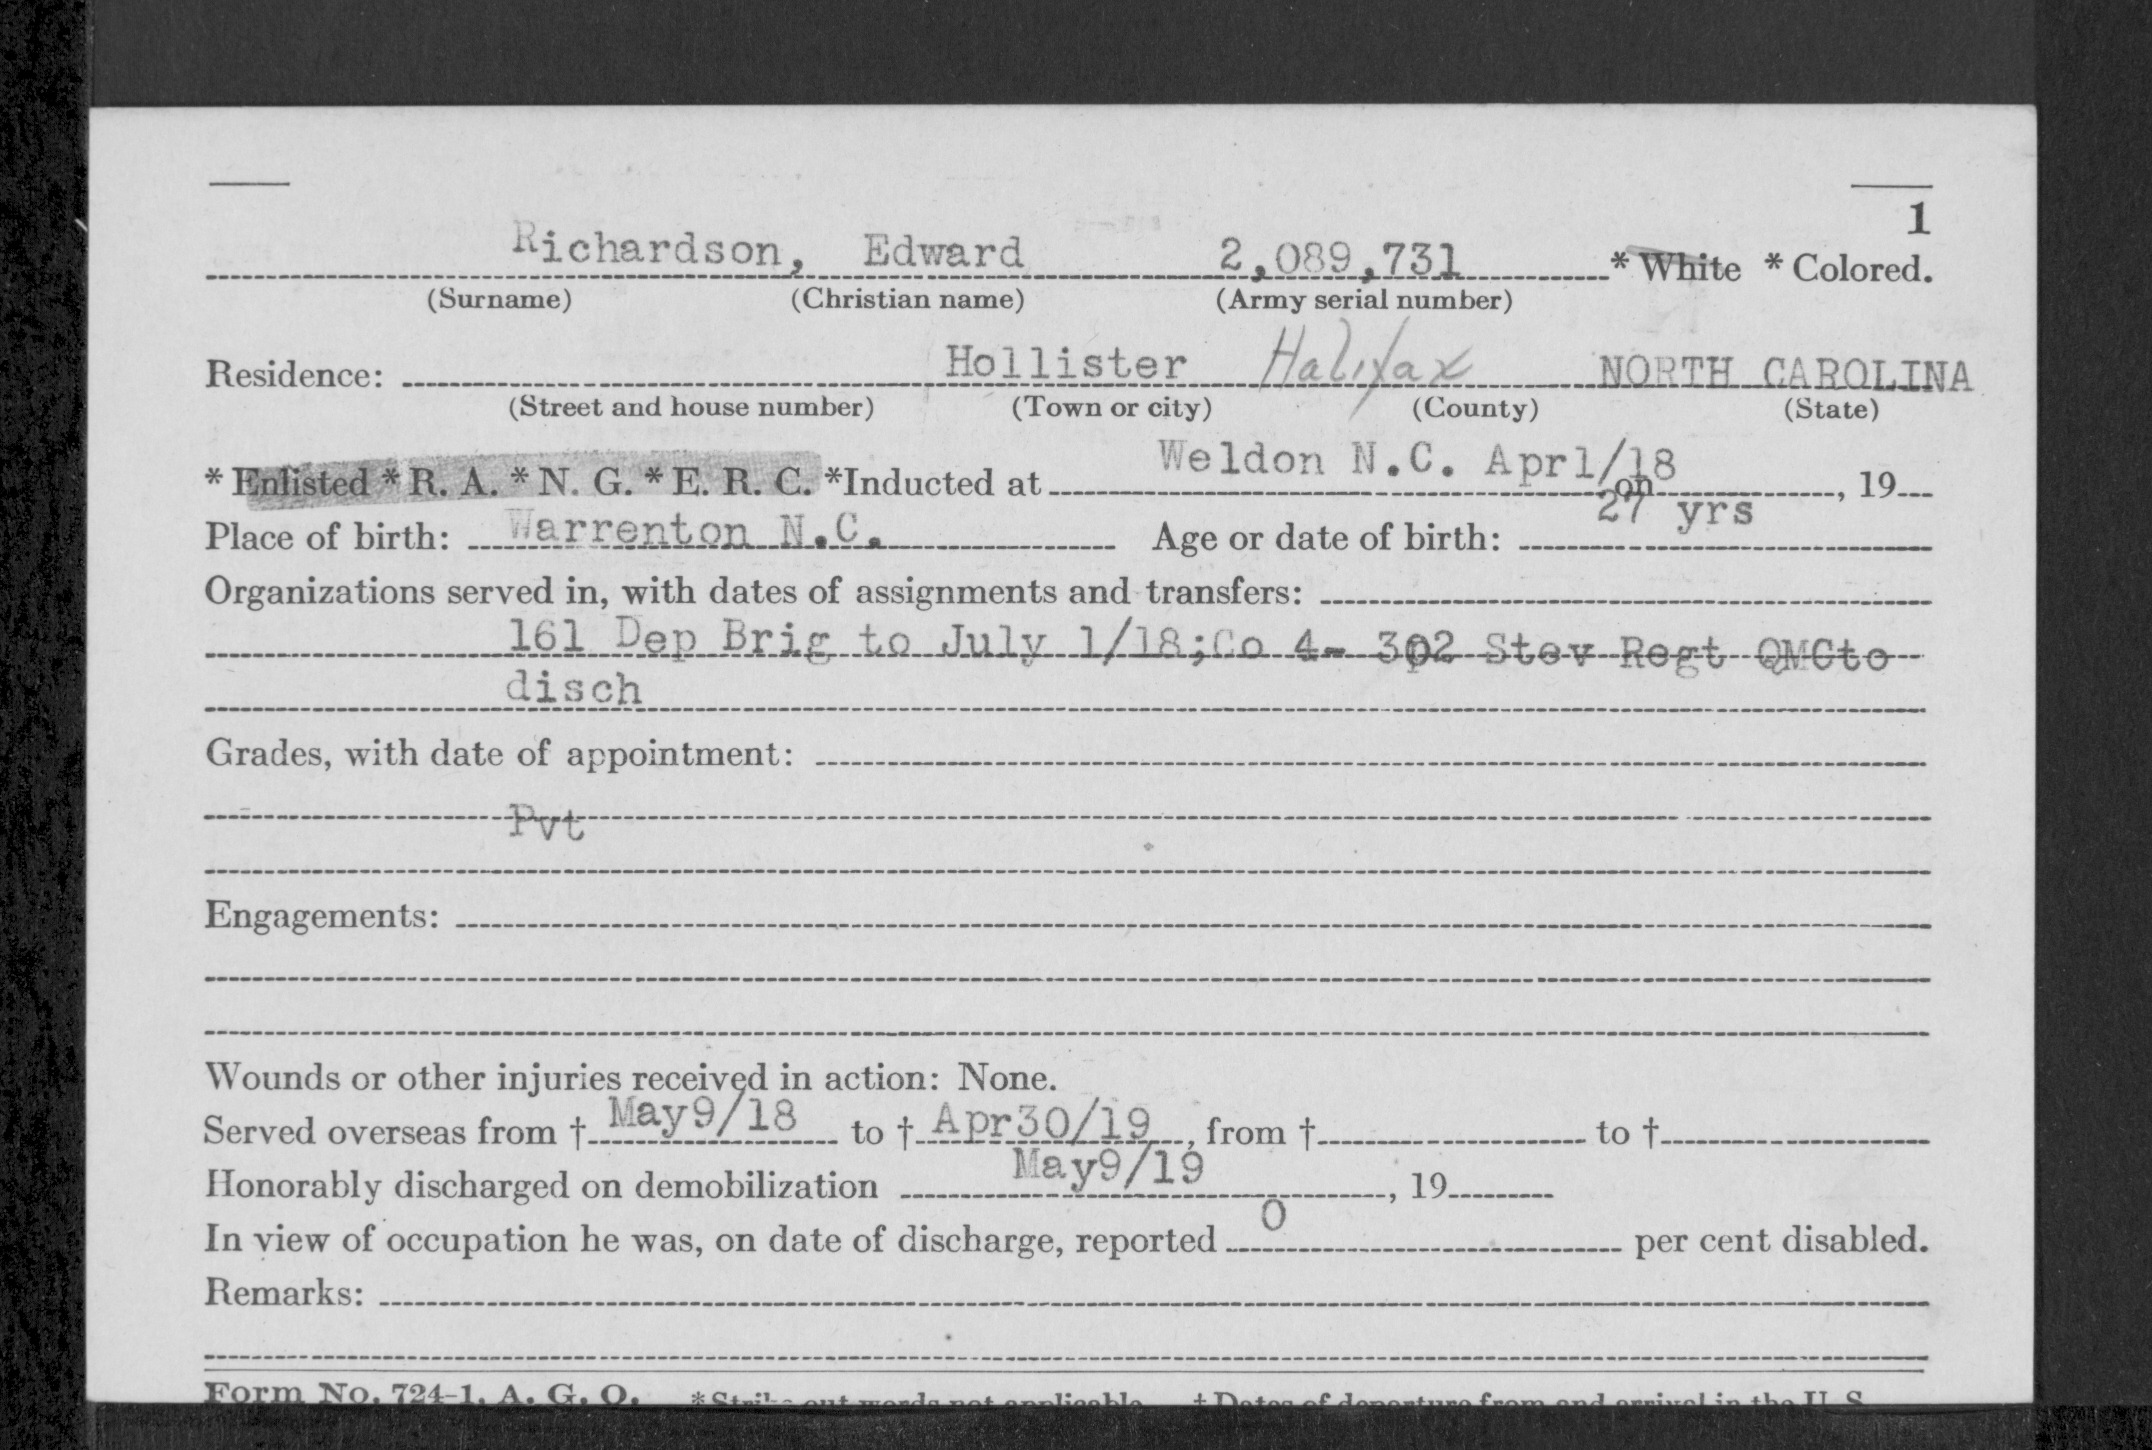 1
Richardson, Edward 2,089,731 * White * Colored.
(Surname) (Christian name) (Army serial number)
Residence: Hollister Halifax NORTH CAROLINA
(Street and house number) (Town or city) (County) (State)
* Enlisted * R. A. * N. G. * E. R. C. *Inducted at Weldon N.C. Apr1/18 on , 19
Place of birth: Warrenton N.C. Age or date of birth: 27 yrs
Organizations served in, with dates of assignments and transfers:
161 Dep Brig to July 1/18;Co 4- 302 Stev Regt QMCto
disch
Grades, with date of appointment:
Pvt
Engagements:
Wounds or other injuries received in action: None.
Served overseas from † May9/18 to † Apr30/19, from † to †
Honorably discharged on demobilization May9/19, 19
In view of occupation he was, on date of discharge, reported 0 per cent disabled.
Remarks:
Form No. 724-1, A. G. O. *Strike out words not applicable. † Dates of departure from and arrival in the U. S.